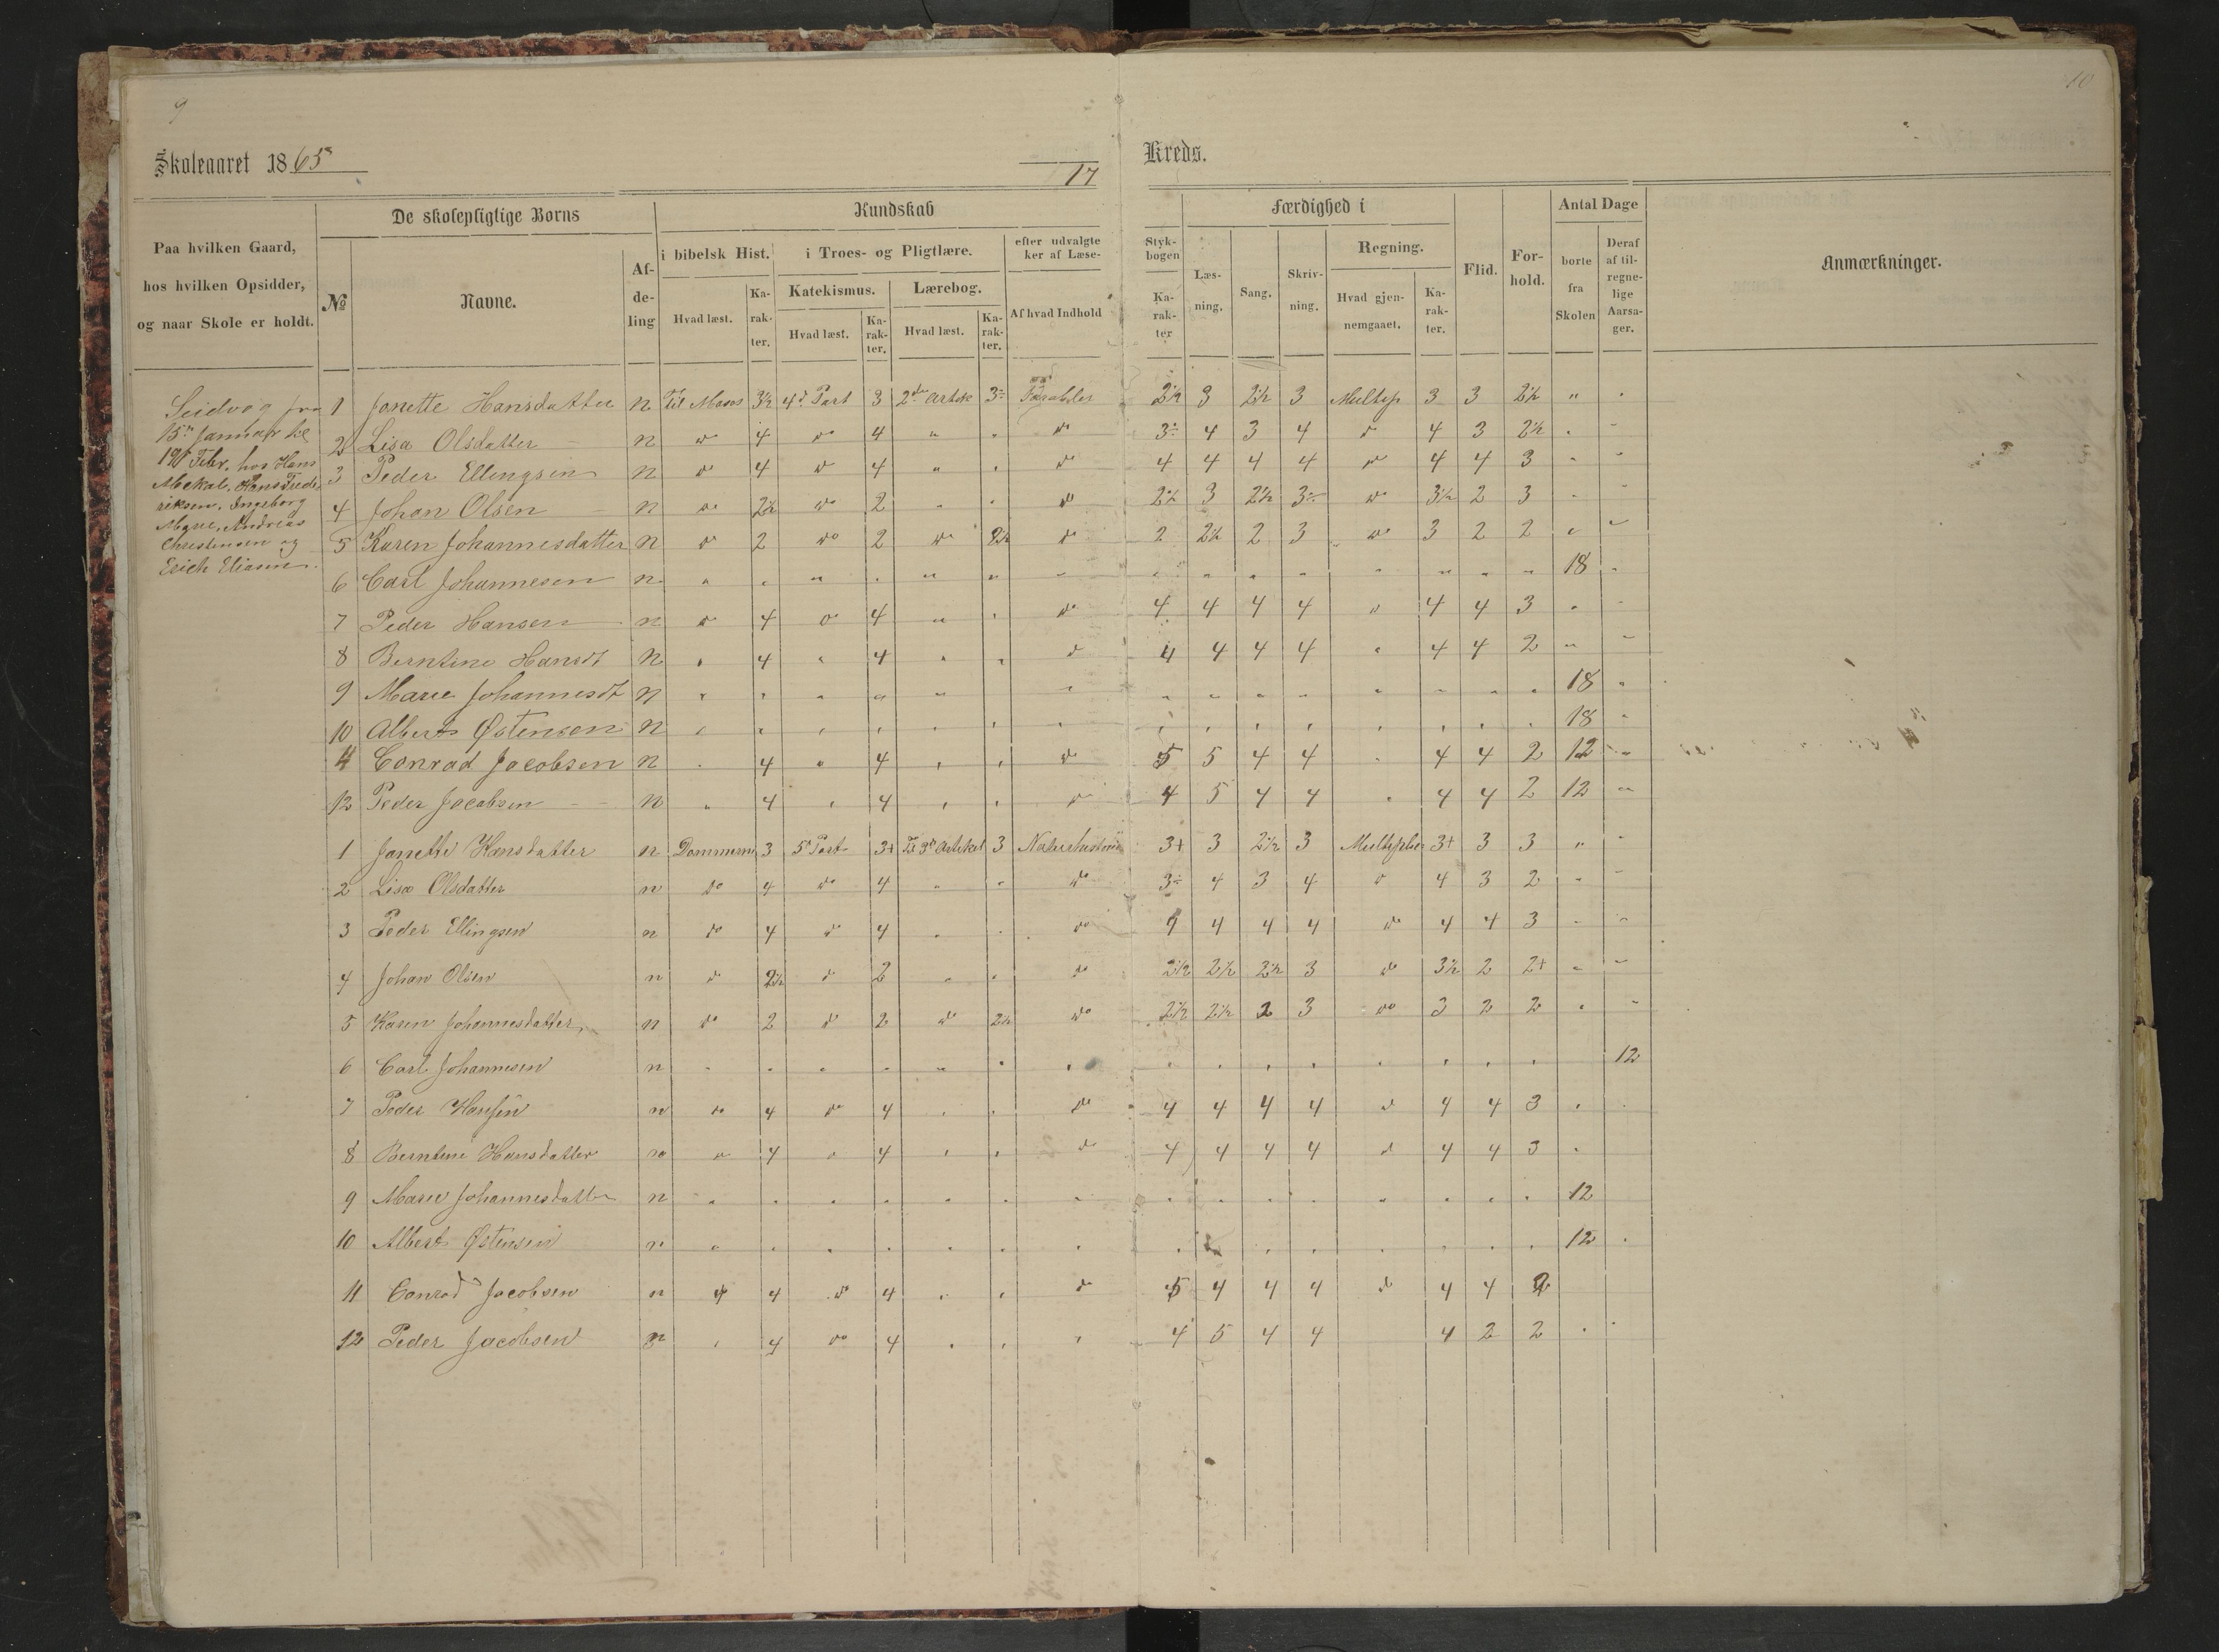 9
10
Skoleaaret 1865
17
Kreds.
Paa hvilken Gaard, hos hvilken Opsidder, og naar Skole er holdt.
De skolepligtige Børns
№
Navne.
Af-de-ling
Kundskab
i bibelsk Hist.
Hvad læst.
Ka-rak-ter.
i Troes- og Pligtlære.
Katekismus.
Hvad læst.
Ka-rak-ter.
Lærebog.
Hvad læst.
Ka-rak-ter.
efter udvalgte
ker af Læse-
Af hvad Indhold
Styk-
bogen
Ka-rak-ter
Færdighed i
Læs-ning.
Sang.
Skriv-ning.
Regning.
Hvad gjen-nemgaaet.
Ka-rak-ter.
Flid.
For-hold.
Antal Dage
borte fra Skolen
Deraf af til-regne-lige Aarsa-ger.
Anmærkninger.
Seidvog fra
15de Januar til
Febr. hos Hans
Mekal, Hans Frede
riksen, Ingeborg
Andreas
Christensen og
Erich Eliasen.
1 Janette Hansdatter n Til Moses 3½ 4de Part 3 2den Artik 3÷ Parabler 2½ 3 2½ 3 Multip 3 3 2½ " "
2 Lisa Olsdatter n do 4 do 4 " " do 3÷ 4 3 4 do 4 3 2½ " "
3 Peder Ellingsen n do 4 do 4 " " do 4 4 4 4 do 4 4 3 " "
4 Johan Olsen n do 2½ do 2 " " do 2½ 3 2½ 3÷ do 3½ 2 3 " "
5 Karen Johannesdatter n do 2 do 2 do 2½ do 2 2½ 2 3 do 3 2 2 " "
6 Carl Johannesen n " " " " " " " " " " " " " " " 18 "
7 Peder Hansen n do 4 do 4 " " do 4 4 4 4 " 4 4 3 " "
8 Berntine Hansdt n " 4 " 4 " " do 4 4 4 4 " 4 4 2 " "
9 Marie Johannesdt n " " " " " " " " " " " " " " " 18 "
10 Albert Østensen n " " " " " " " " " " " " " " " 18 "
11 Conrad Jacobsen n " 4 " 4 " " do 5 5 4 4 " 4 4 2 12 "
12 Peder Jacobsen n " 4 " 4 " " do 4 5 4 4 " 4 4 2 12 "
1 Janette Hansdatter n Dommerne 3 5te Part 3+ Til 3die Artikel 3 Naturhistorie 3+ 3 2½ 3 Multiplic 3+ 3 3 " "
2 Lisa Olsdatter n do 4 do 4 " " do 3÷ 4 3 4 do 4 3 2 " "
3 Peder Ellingsen n do 4 do 4 " " do 4 4 4 4 do 4 4 3 " "
4 Johan Olsen n do 2½ do 2 " " do 2½ 2½ 2½ 3 do 3½ 2 2+ " "
5 Karen Johannesdatter n do 2 do 2 do 2½ do 2½ 2½ 2 3 do 3 2 2 " "
6 Carl Johannesen n " " " " " " " " " " " " " " " 12
7 Peder Hansen n do 4 do 4 " " do 4 4 4 4 do 4 4 3 " "
8 Berntine Hansdatter n do 4 " 4 " " do 4 4 4 4 do 4 4 3 "
9 Marie Johannesdatter n " " " " " " " " " " " " " " " 12
10 Albert Østensen n " " " " " " " " " " " " " " 12 "
11 Conrad Jacobsen n do 4 do 4 " " do 5 4 4 4 do 4 4 2
12 Peder Jacobsen n " 4 do 4 " " " 4 5 4 4 4 2 2 " "